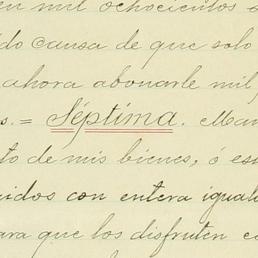 en mil ochocientos s
do causa de que solo
ahora abonarle mil
s. = Séptima. Man
to de mis bienes, ó es
uidos con entera iguala
ara que los disfruten c